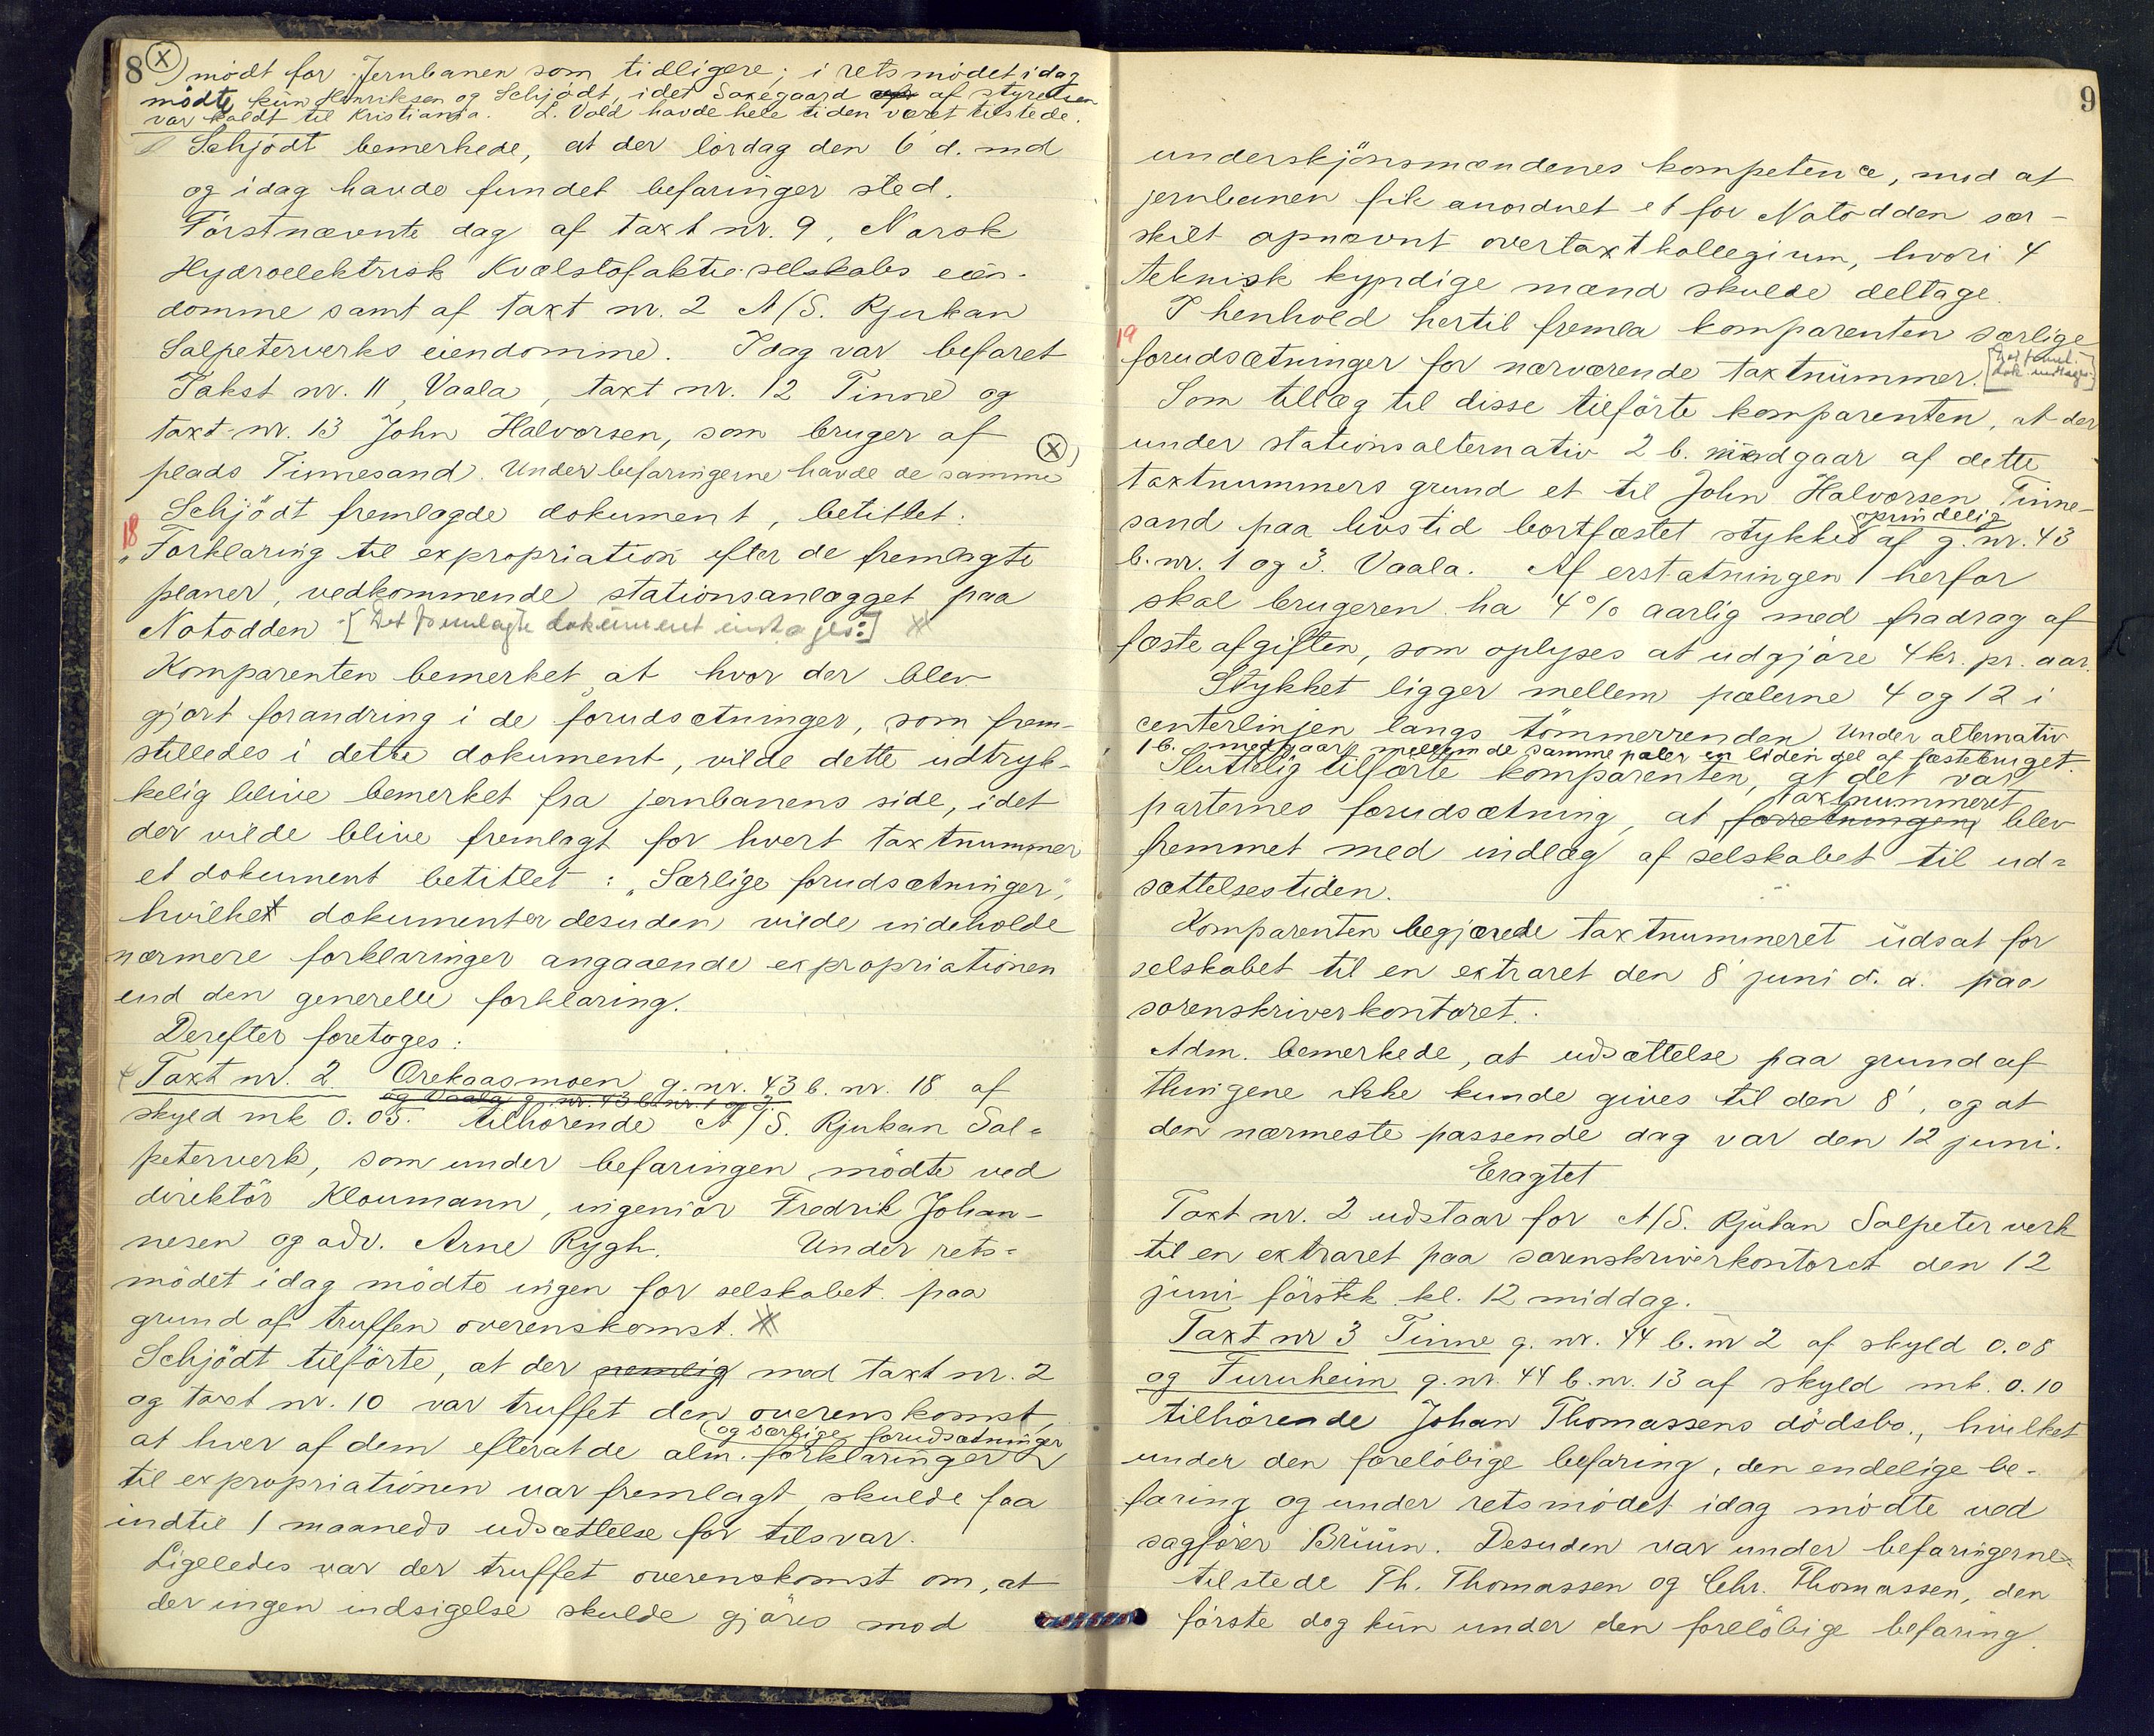 8 (X) mödt for Jernbanen som tidligere; i retsmödet idag
mödte kun Henriksen og Schjödt, idet Saxegaard af styrelsen
var kaldt til Kristiania. L. Vold havde hele tiden været tilstede.
Schjödt bemerkede, at der lördag den 6' d. md
og idag havde fundet befaringer sted.
Förstnævnte dag af taxt nr. 9, Norsk
Hydroelektrisk Kvælstofaktieselskabs eien-
domme samt af taxt nr. 2 A/S. Rjukan
Salpeterverks eiendomme. Idag var befaret
Takst nr. 11, Vaala, taxt nr. 12 Tinne og
taxt nr. 13 John Halvorsen, som bruger af
plads Tinnesand. Under befaringerne havde de samme (X)
Schjödt fremlagde dokument, betitlet:
18
"Forklaring til expropriation efter de fremlagte
planer, vedkommende stationsanlægget paa
Notodden [Det fremlagte dokument indtages:]
Komparenten bemerket at hvor der blev
gjort forandring i de forudsætninger, som frem-
stilledes i dette dokument, vilde dette udtryk-
kelig blive bemerket fra jernbanens side, idet
der vilde blive fremlagt for hvert taxtnummer
et dokument betitlet: "Særlige forudsætninger",
hvilket dokumenter desuden vilde indeholde
nærmere forklaringer angaaende expropriationen
end den generelle forklaring.
Derefter foretoges:
Taxt nr. 2 Orekaasmoen g. nr. 43 b. nr. 18 af
og Vaala g. nr. 43 b. nr. 1 og 3.
skyld mk 0.05. tilhörende A/S. Rjukan Sal-
peterverk, som under befaringen mödte ved
direktör Kloumann, ingeniör Fredrik Johan-
nesen og adv. Arne Rygh. Under rets-
mödet idag mödte ingen for selskabet paa
grund af truffen overenskomst.
Schjödt tilförte, at der nemlig med taxt nr. 2
og taxt nr. 10 var truffet den overenskomst,
og særlige forudsætninger
at hver af dem efterat de alm. forklaringer
til expropriationen var fremlagt skulde faa
indtil 1 maaneds udsættelse for tilsvar.
Ligeledes var der truffet overenskomst om, at
der ingen indsigelse skulde gjöres mod
9
underskjönsmændenes kompetence, mod at
jernbanen fik anordnet et for Notodden sær-
skilt opnævnt overtaxtkollegium, hvori 4
teknisk kyndige mænd skulde deltage.
I henhold hertil fremla komparenten særlige
19
forudsætninger for nærværende taxtnummer. [Det freml. dok. indtages]
Som tillæg til disse tilförte komparenten, at der
under stationsalternativ 2 b. medgaar af dette
taxtnummers grund et til John Halvorsen Tinne-
oprindelig
sand paa livstid bortfæstet stykke af g. nr. 43
b. nr. 1 og 3. Vaala. Af erstatningen herfor
skal brugeren ha 4% aarlig med fradrag af
fæsteafgiften, som oplyses at udgjöre 4 kr. pr. aar.
Stykket ligger mellem pælerne 4 og 12 i
centerlinjen langs tömmerrenden Under alternativ
1 b. medgaar mellem de samme pæler en liden del af fæstebruget.
Sluttelig tilförte komparenten, at det var
taxtnummeret
parternes forudsætning, at forretningen blev
fremmet med indlæg af selskabet til ud-
sættelsestiden.
Komparenten begjærede taxtnummeret udsat for
selskabet til en extraret den 8' juni d. a. paa
sorenskriverkontoret.
Adm. bemerkede, at udsættelse paa grund af
thingene ikke kunde gives til den 8', og at
den nærmeste passende dag var den 12 juni.
Eragtet
Taxt nr. 2 udstaar for A/S. Rjukan Salpeterverk
til en extraret paa sorenskriverkontoret den 12
juni förstk. kl. 12 middag.
Taxt nr 3 Tinne g. nr. 44 b. nr 2 af skyld 0.08
og Furuheim g. nr. 44 b. nr. 13 af skyld mk. 0.10
tilhörende Johan Thomassens dödsbo., hvilket
under den forelöbige befaring, den endelige be-
faring og under retsmödet idag mödte ved
sagförer Bruun. Desuden var under befaringerne
tilstede Th. Thomassen og Chr. Thomassen, den
förste dog kun under den forelöbige befaring.